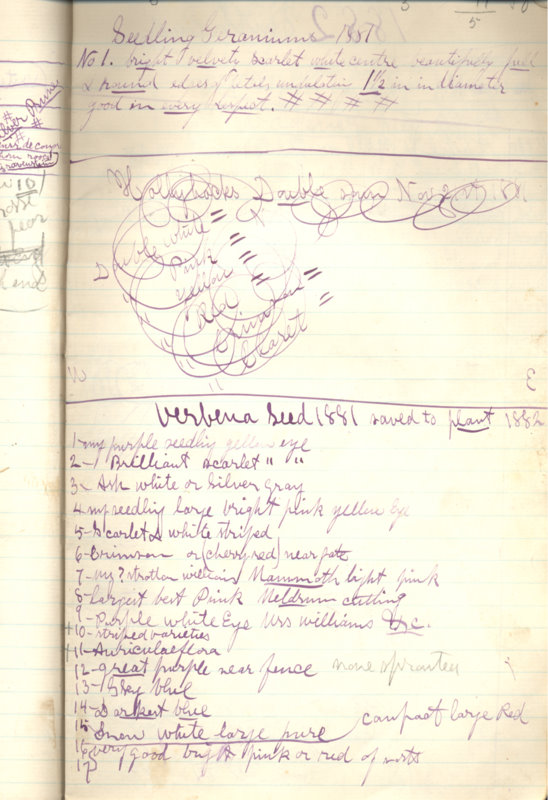 Seedling Geraniums 1881
No 1. bright velvety scarlet white centre beautifully full
& round edges of petals undulatin 1½ in in diameter
good in every respect. # # # #
Hollyhocks Double sown Nov 2 1881
Double white "
" Pink "
yellow "
" Red "
" Crimson "
" Scarlet "
W E
Verbena Seed 1881 saved to plant 1882
1- my purple seedling yellow eye
2- 1 Brilliant scarlet " "
3- Ash white or Silver gray
4 my seedling large bright pink yellow Eye
5- Scarlet & white striped
6- Crimson or (cherry red) near gate
7- my ? stratton william Mammoth light pink
8- largest best Pink Meldrum cutting
9- Purple white Eye Mrs williams &c.
+10- striped varieties
+11- Auriculaeflora
12- great purple near fence none
13- Sky blue
14- Darkest blue
15 Snow white large pure compact large Red
16 very good bright pink or red of north
17